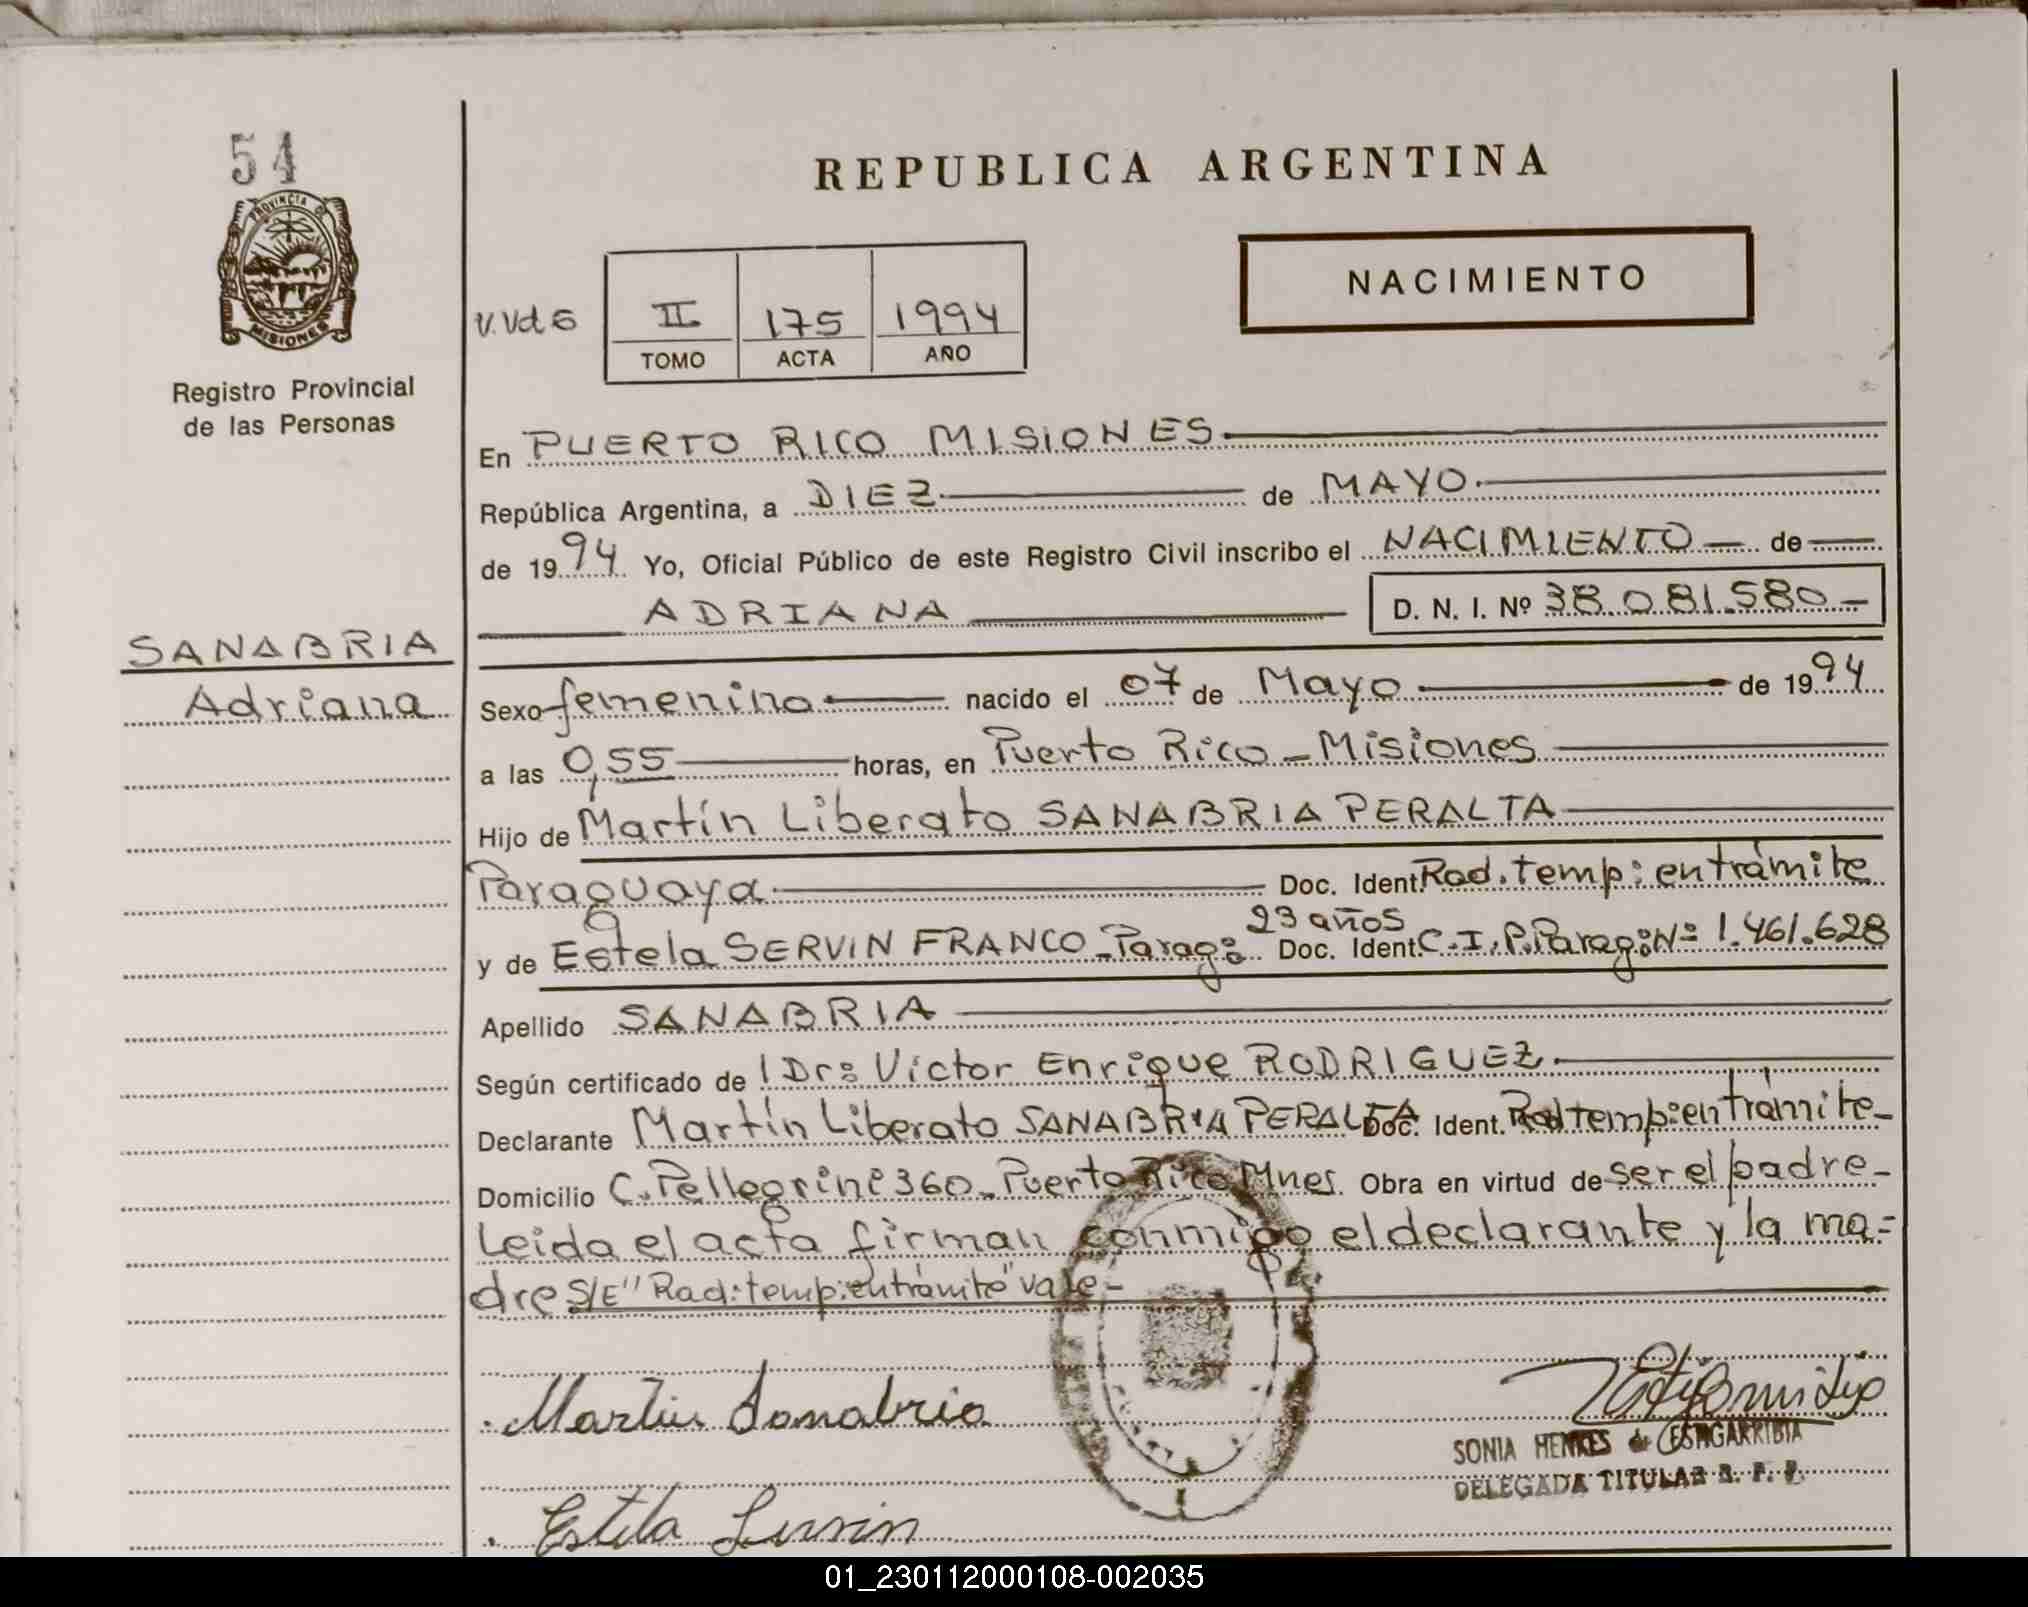 54
PROVINCIA DE
MISIONES
Registro Provincial
de las Personas
REPUBLICA ARGENTINA
NACIMIENTO
II 175 1994
TOMO ACTA AÑO
En PUERTO RICO MISIONES
República Argentina, a DIEZ de MAYO
de 1994 Yo, Oficial Público de este Registro Civil inscribo el NACIMIENTO de
ADRIANA D. N. I. Nº 38.081.580
SANABRIA
Adriana
Sexo femenino nacido el 07 de Mayo de 1994
a las 0,55 horas, en Puerto Rico - Misiones
Hijo de Martín Liberato SANABRIA PERALTA
Paraguaya Doc. Ident. Rad. temp: entrámite
23 años
y de Estela SERVIN FRANCO - Parag: Doc. Ident. C. I. P. Parag: Nº 1.461.628
Apellido SANABRIA
Según certificado de l Dr: Victor Enrique RODRIGUEZ
Declarante Martín Liberato SANABRIA PERALTA Doc. Ident. Rad temp: entrámite
Domicilio C. Pellegrini 360 - Puerto Rico Mnes. Obra en virtud de ser el padre
Leida el acta firman conmigo el declarante y la ma=
dre S/E "Rad: temp: entrámite" vale
Martin Sanabria
SONIA HENKES de ESTIGARRIBIA
DELEGADA TITULAR R. P. P.
Estela Servin
01_230112000108-002035